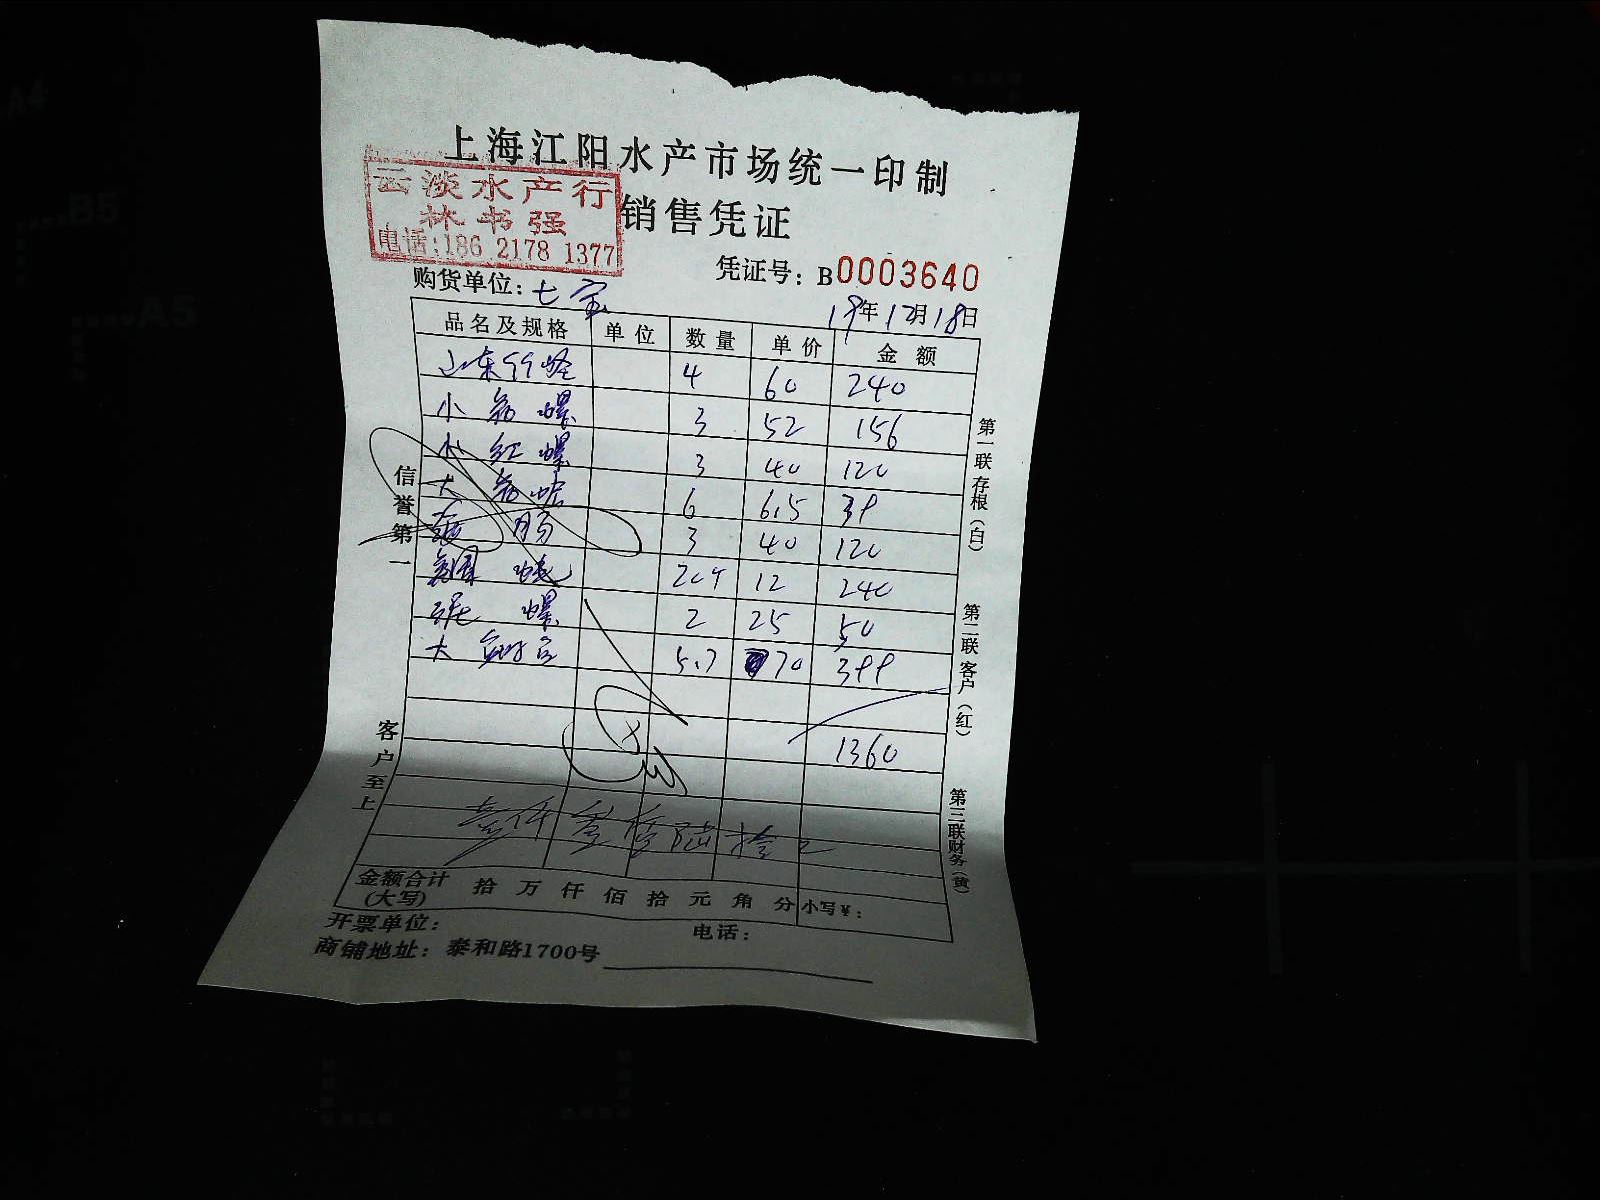 上海江阳水产市场统一印制
云淡水产行
林书强
电话:186 2178 1377
销售凭证
凭证号: B0003640
购货单位: 七宝
19年12月18日
品名及规格 单位 数量 单价 金额
山东竹蛏 4 60 240
小 螺 3 52 156
小 红 螺 3 40 120
大 蛤 6 6.5 39
肠 3 40 120
204 12 240
螺 2 25 50
大 5.7 70 399
1360
壹仟叁佰陆拾元
金额合计
(大写) 拾 万 仟 佰 拾 元 角 分 小写¥:
开票单位: 电话:
商铺地址: 泰和路1700号
信誉第一
客户至上
第一联存根(白)
第二联客户(红)
第三联财务(黄)
A4
B5
A5